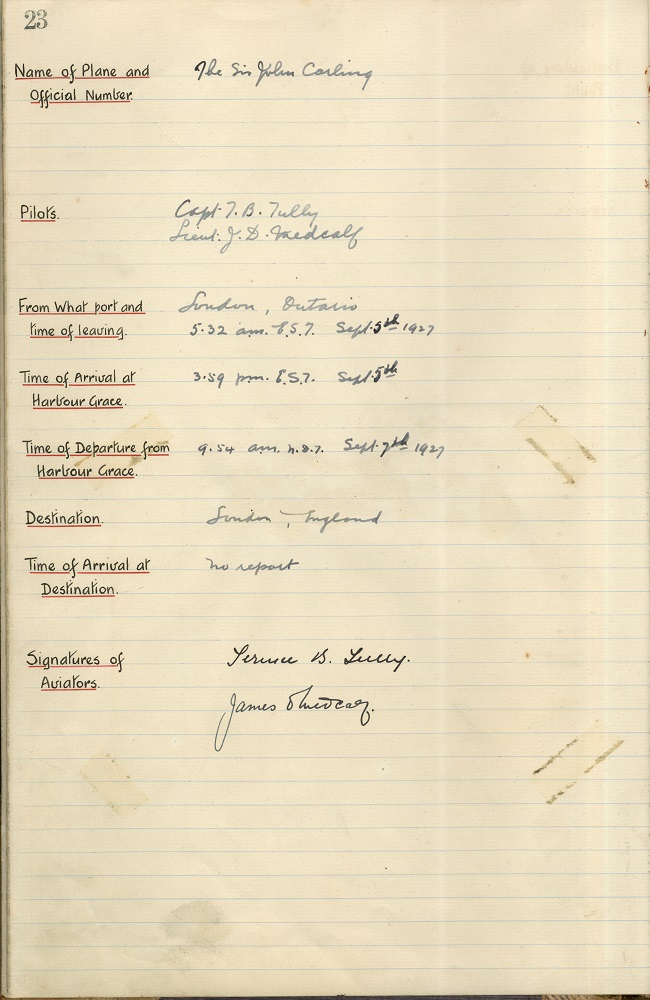 23
Name of Plane and The Sir John Carling
Official Number.
Pilots. Capt. T. B. Tully
Lieut. J. D. Medcalf
From What port and London, Ontario
time of leaving. 5.32 am. E.S.T. Sept. 5th 1927
Time of Arrival at 3.59 pm. E.S.T. Sept. 5th
Harbour Grace.
Time of Departure from 9.54 am. N.D.T. Sept. 7th 1927
Harbour Grace.
Destination. London, England
Time of Arrival at No report
Destination.
Signatures of Terence B. Tully.
Aviators.
James D Medcalf.